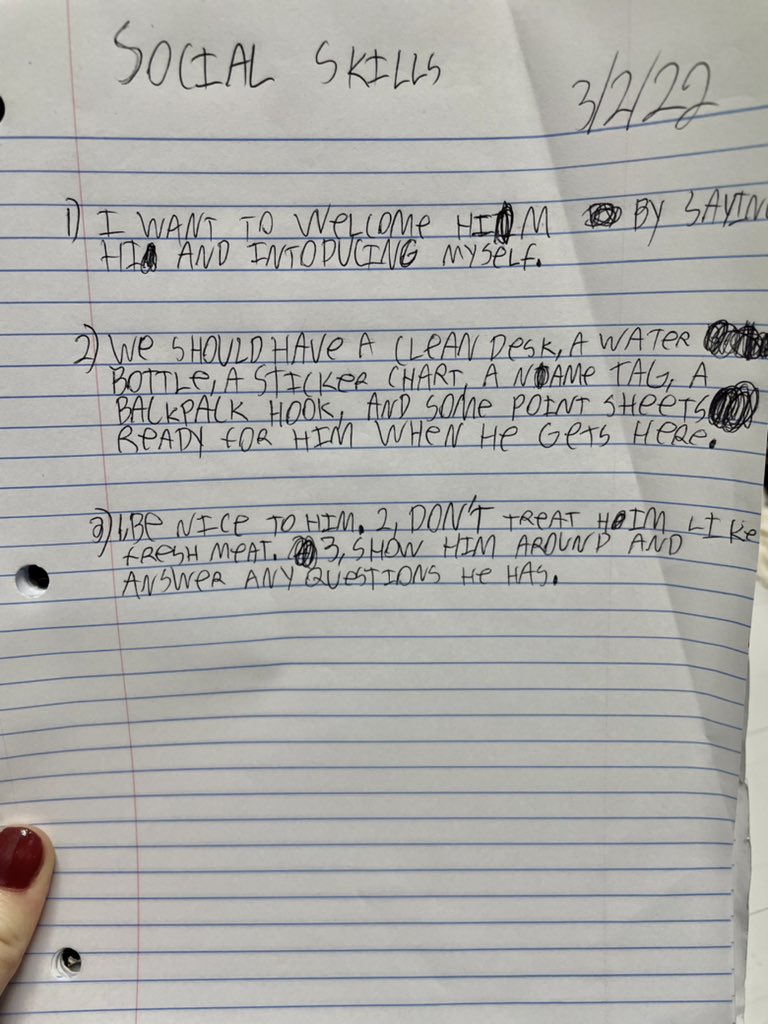 SOCIAL SKILLS
3/2/22
1) I WANT TO WELCOME HIM BY SAYING
HI AND INTODUCING MYSELF.
2) WE SHOULD HAVE A CLEAN DESK, A WATER
BOTTLE, A STICKER CHART, A NAME TAG, A
BACKPACK HOOK, AND SOME POINT SHEETS
READY FOR HIM WHEN HE GETS HERE.
3) 1, BE NICE TO HIM. 2, DON'T TREAT HIM LIKE
FRESH MEAT. 3, SHOW HIM AROUND AND
ANSWER ANY QUESTIONS HE HAS.